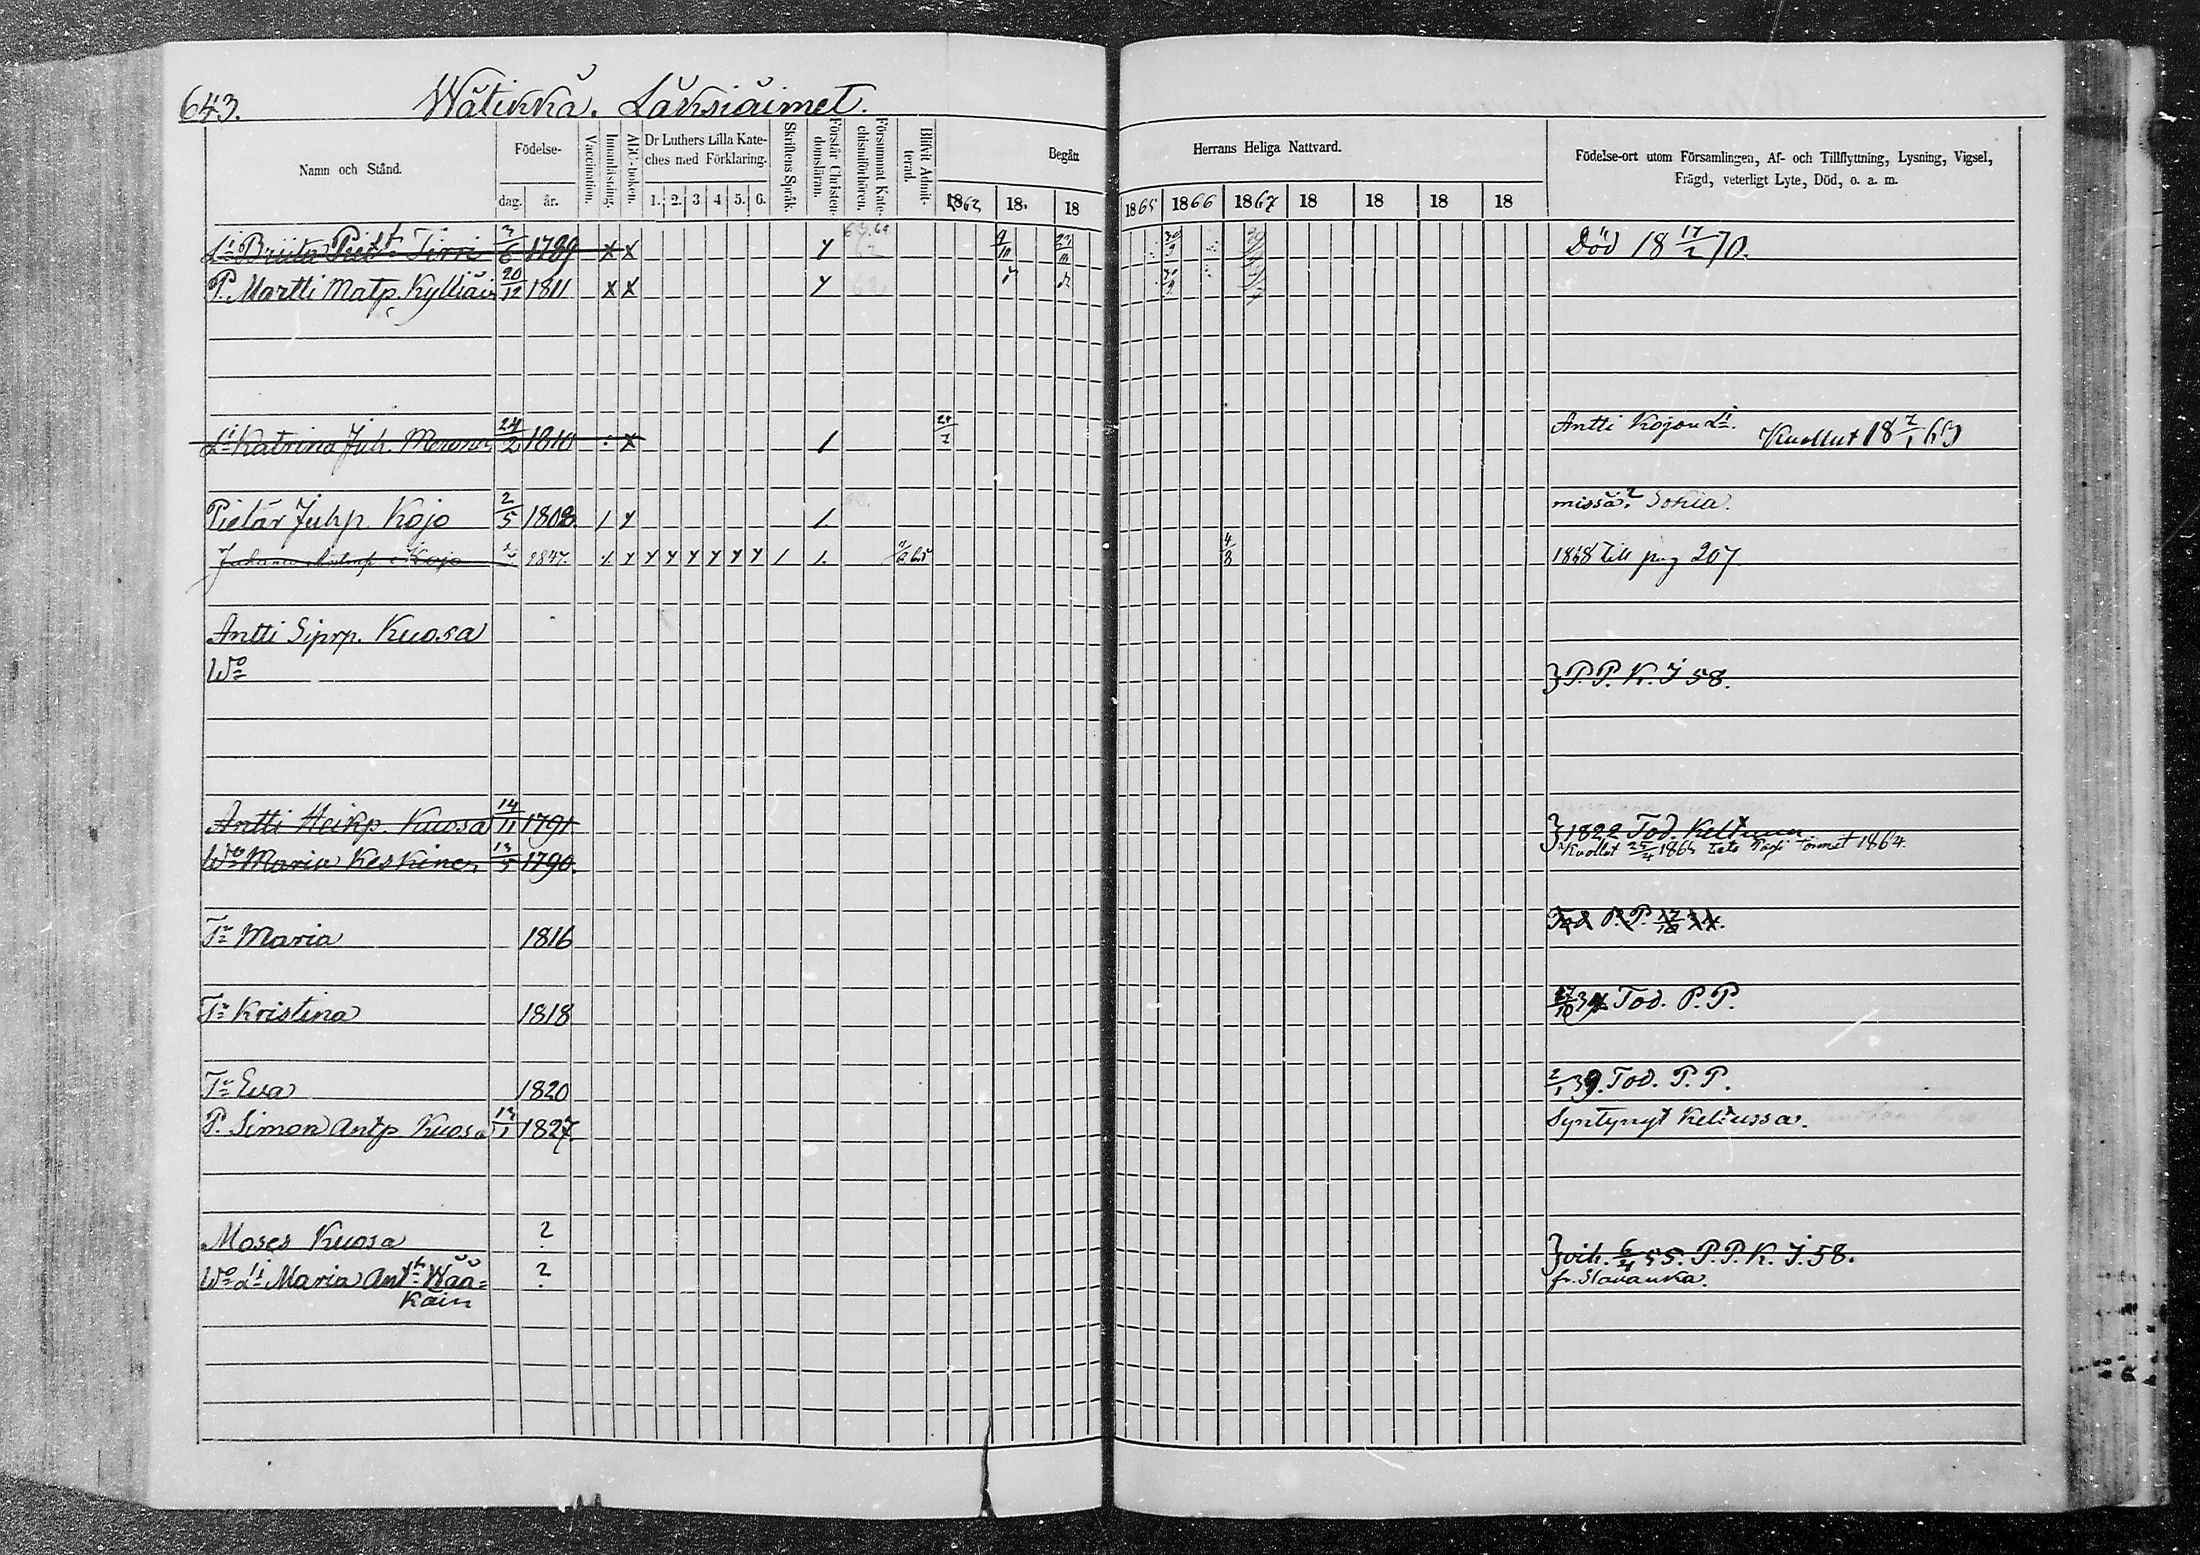 643. Wätikkä. Läksiäimet.
Namn och Stånd.
Födelse-
dag. år.
Vaccination.
Innanläsning.
ABC-boken.
Dr Luthers Lilla Kate-
ches med Förklaring.
1. 2. 3 4 5. 6.
Skriftens Språk.
Förstår Christen-
domsläran.
Försummat Kate-
chismiförhören.
Blifvit Admit-
terad.
Begått
Herrans Heliga Nattvard.
1862 18 18 1865 1866 1867 18 18 18 18
Födelse-ort utom Församlingen, Af- och Tillflyttning, Lysning, Vigsel,
Frägd, veterligt Lyte, Död, o. a. m.
Li Briita Piett Tirri 3/6 1789 x x y Död 18 17/2 70.
P. Martti Matp. Kylliäin 20/12 1811 x x y
Li Katrina Juh. 24/2 1810 x 1 Antti Kojon Li. Kuollut 18 7/1 63
Pietär Juhp. Kojo 2/5 1808. 1 y 1. missä? Sokia.
Juhana Kojo 1847. y y y y y y y 1 1. 4/8 1868 till pag 207
Antti Siprp. Kuosa
Wo } P. P. K. I 58.
Antti Heikp. Kuosa 14/11 1791 } 1822 Tod. Keltuun
Wo Maria Keskinen 13/5 1790. Kuollut 25/4 1864
Tr Maria 1816 Tod P. P.
Tr Kristina 1818 27/10 34 Tod. P. P.
Tr Eva 1820 2/1 39. Tod. P. P.
P. Simon Antp Kuosa 13/1 1827 Syntynyt Keltussa.
Moses Kuosa ? } vih. 6/4 55. P. P. K. I. 58.
Wo Li Maria Antt Wää= ? fr. Slavanka.
käin